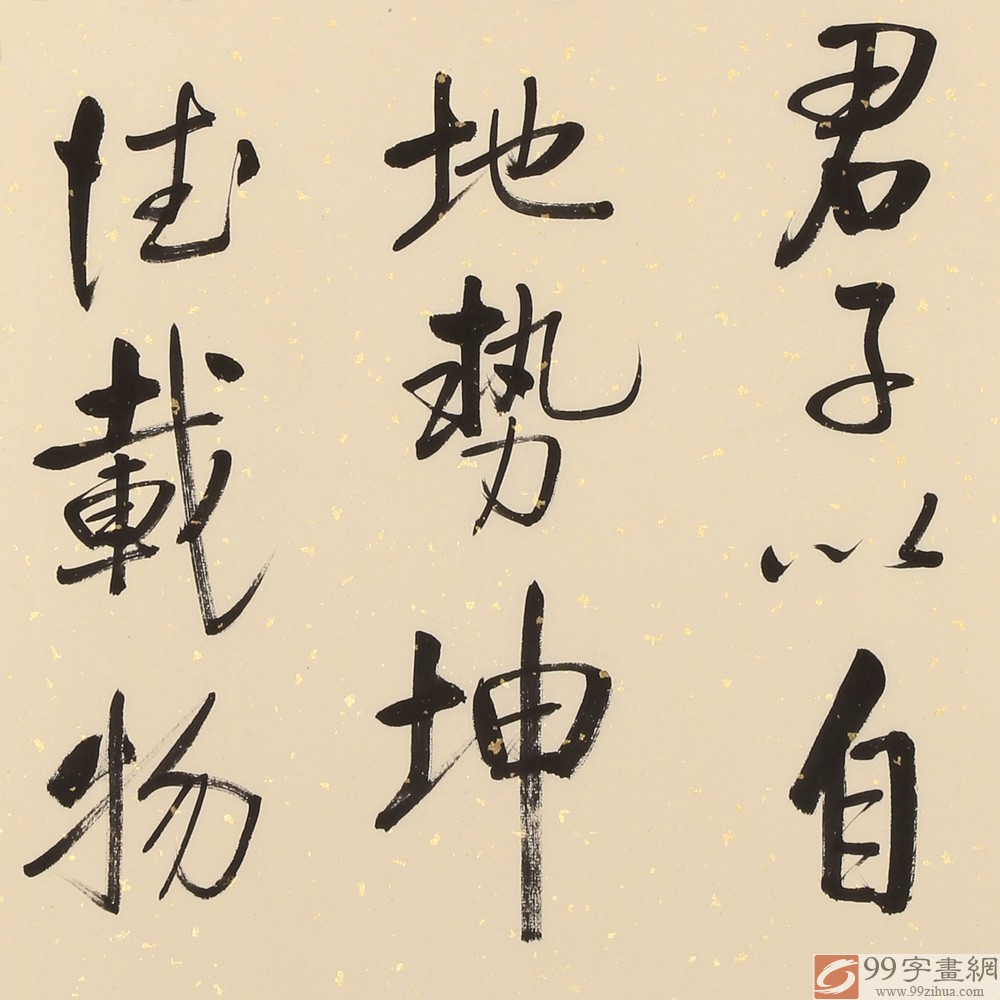 君子以自
地勢坤
德載物
99字畫網
www.99zihua.com